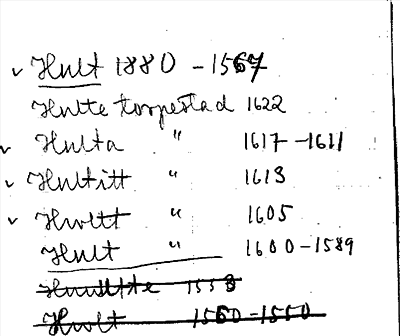 ✓ Hult 1880 - 1567
Hulte torpestad 1622
✓ Hulta " 1617-1611
✓ Hultitt " 1613
✓ Hwltt " 1605
Hult " 1600-1589
1558
Hwlt 1560-1550